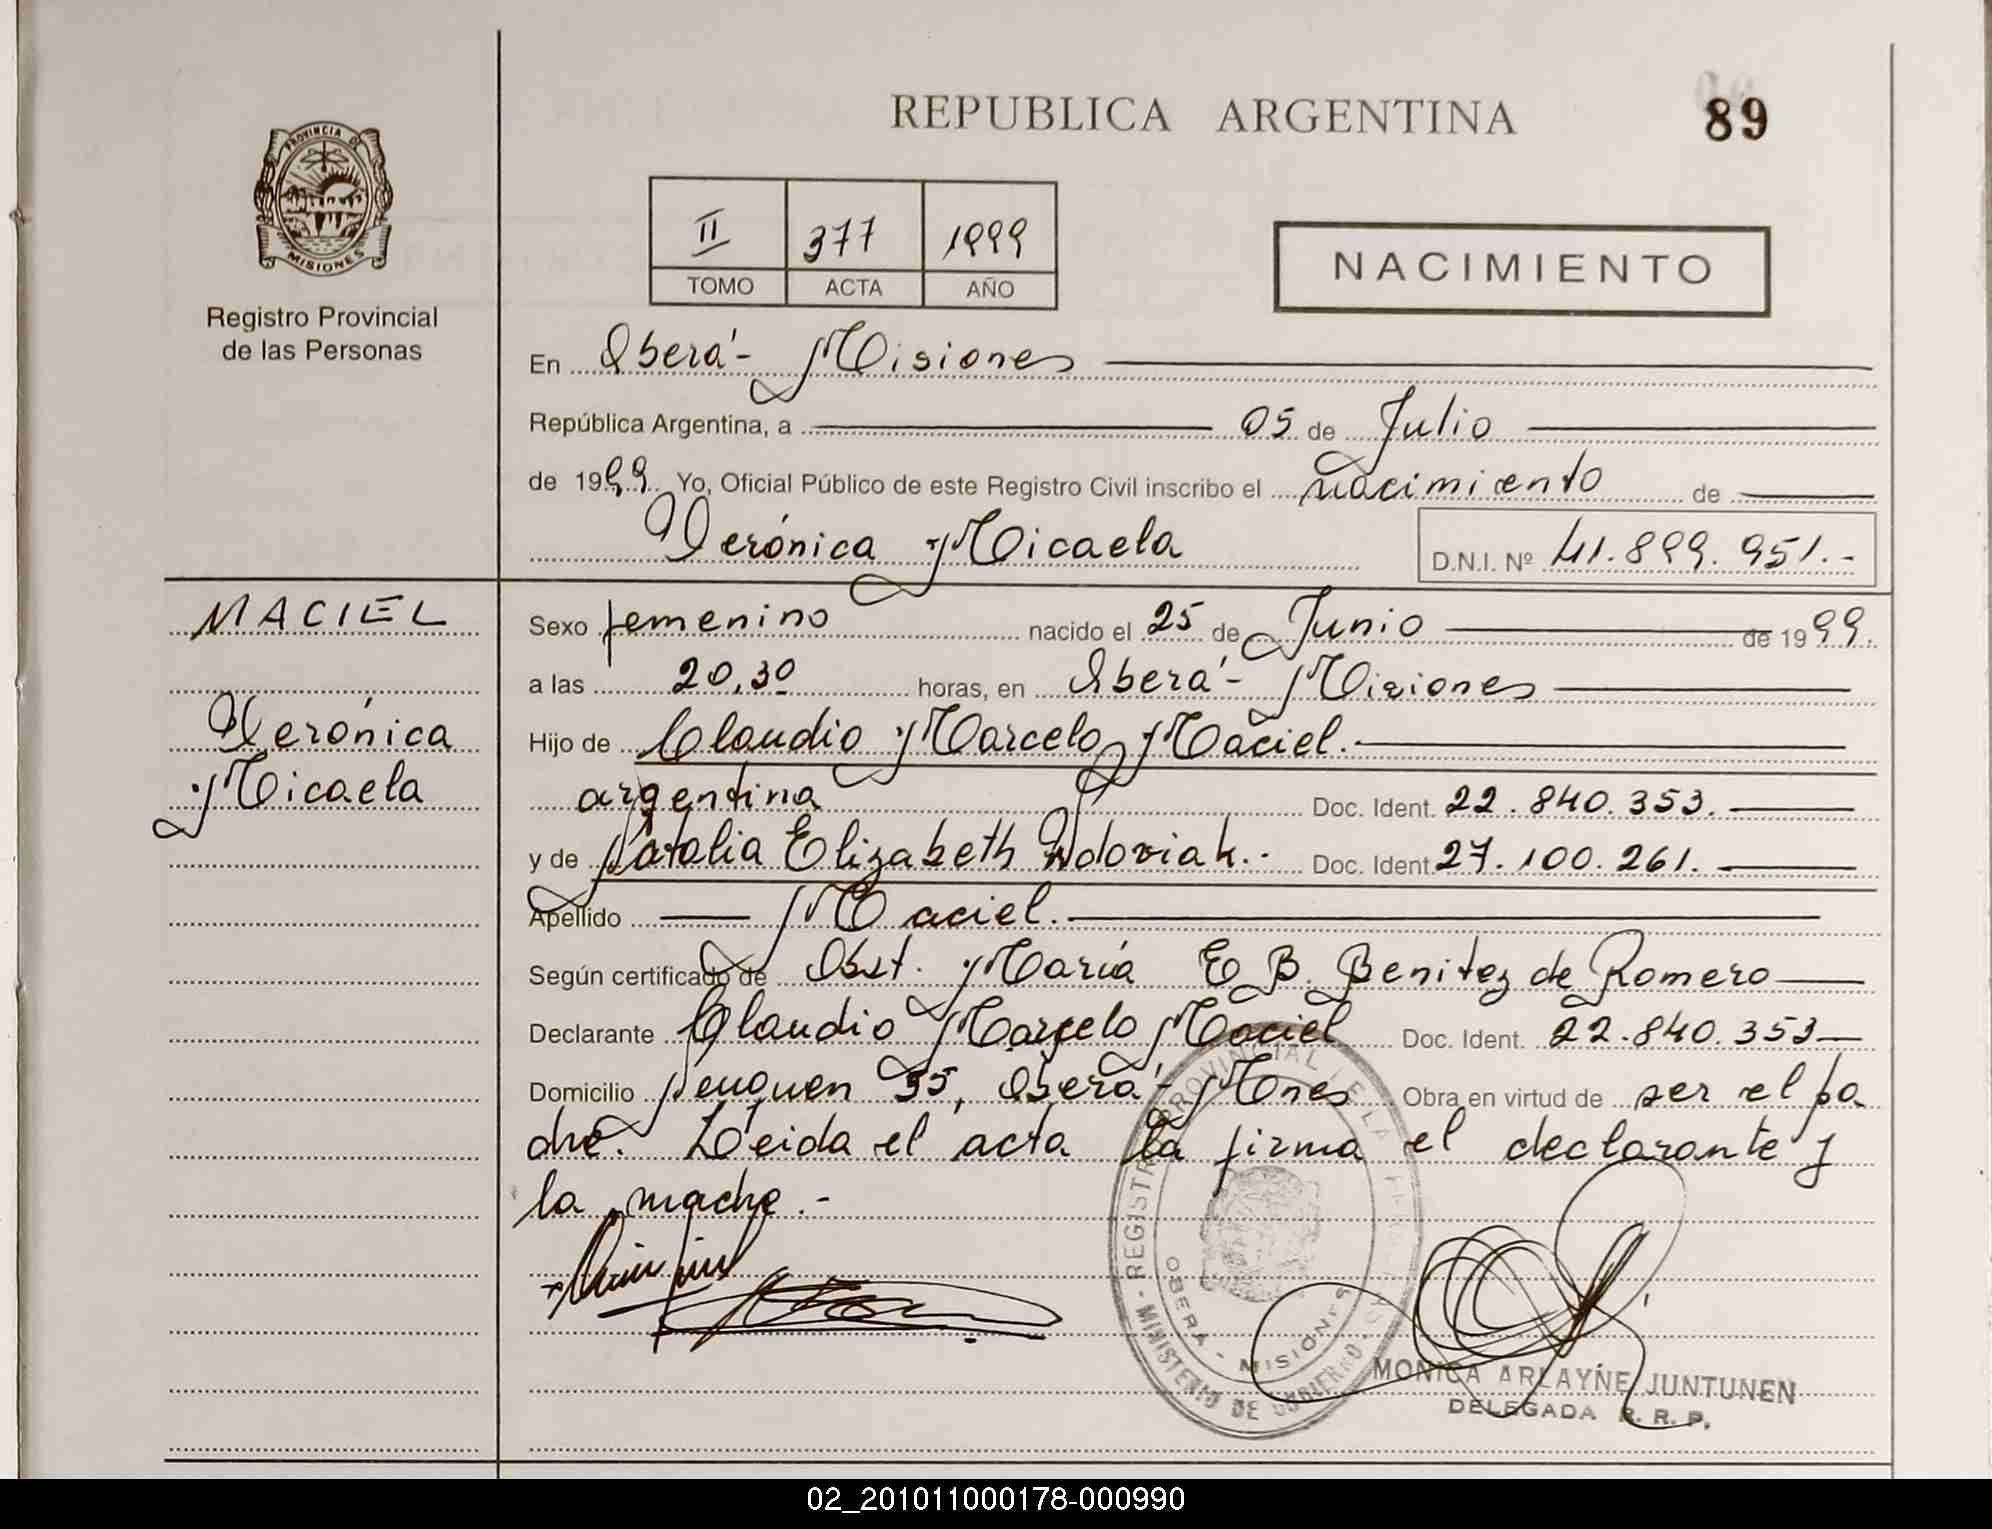 REPUBLICA ARGENTINA
89
PROVINCIA DE
MISIONES
Registro Provincial
de las Personas
II 377 1999
TOMO ACTA AÑO
NACIMIENTO
En Oberá - Misiones
República Argentina, a 05 de Julio
de 1999 Yo, Oficial Público de este Registro Civil inscribo el nacimiento de
Verónica Micaela D.N.I. Nº 41.899.951.-
MACIEL
Verónica
Micaela
Sexo femenino nacido el 25 de Junio de 1999.
a las 20,30 horas, en Oberá - Misiones
Hijo de Claudio Marcelo Maciel.-
argentina Doc. Ident. 22.840.353.
y de Natalia Elizabeth Doc. Ident. 27.100.261.
Apellido Maciel.
Según certificado de Obst. María E B. Benitez de Romero
Declarante Claudio Marcelo Maciel Doc. Ident. 22.840.353
Domicilio Neuquen 35, Oberá - Mnes Obra en virtud de ser el pa
dre. Leida el acta la firma el declarante y
la madre.-
REGISTRO PROVINCIAL DE LAS PERSONAS
OBERA - MISIONES
MINISTERIO DE GOBIERNO
MONICA ARLAYNE JUNTUNEN
DELEGADA R. R. P.
02_201011000178-000990